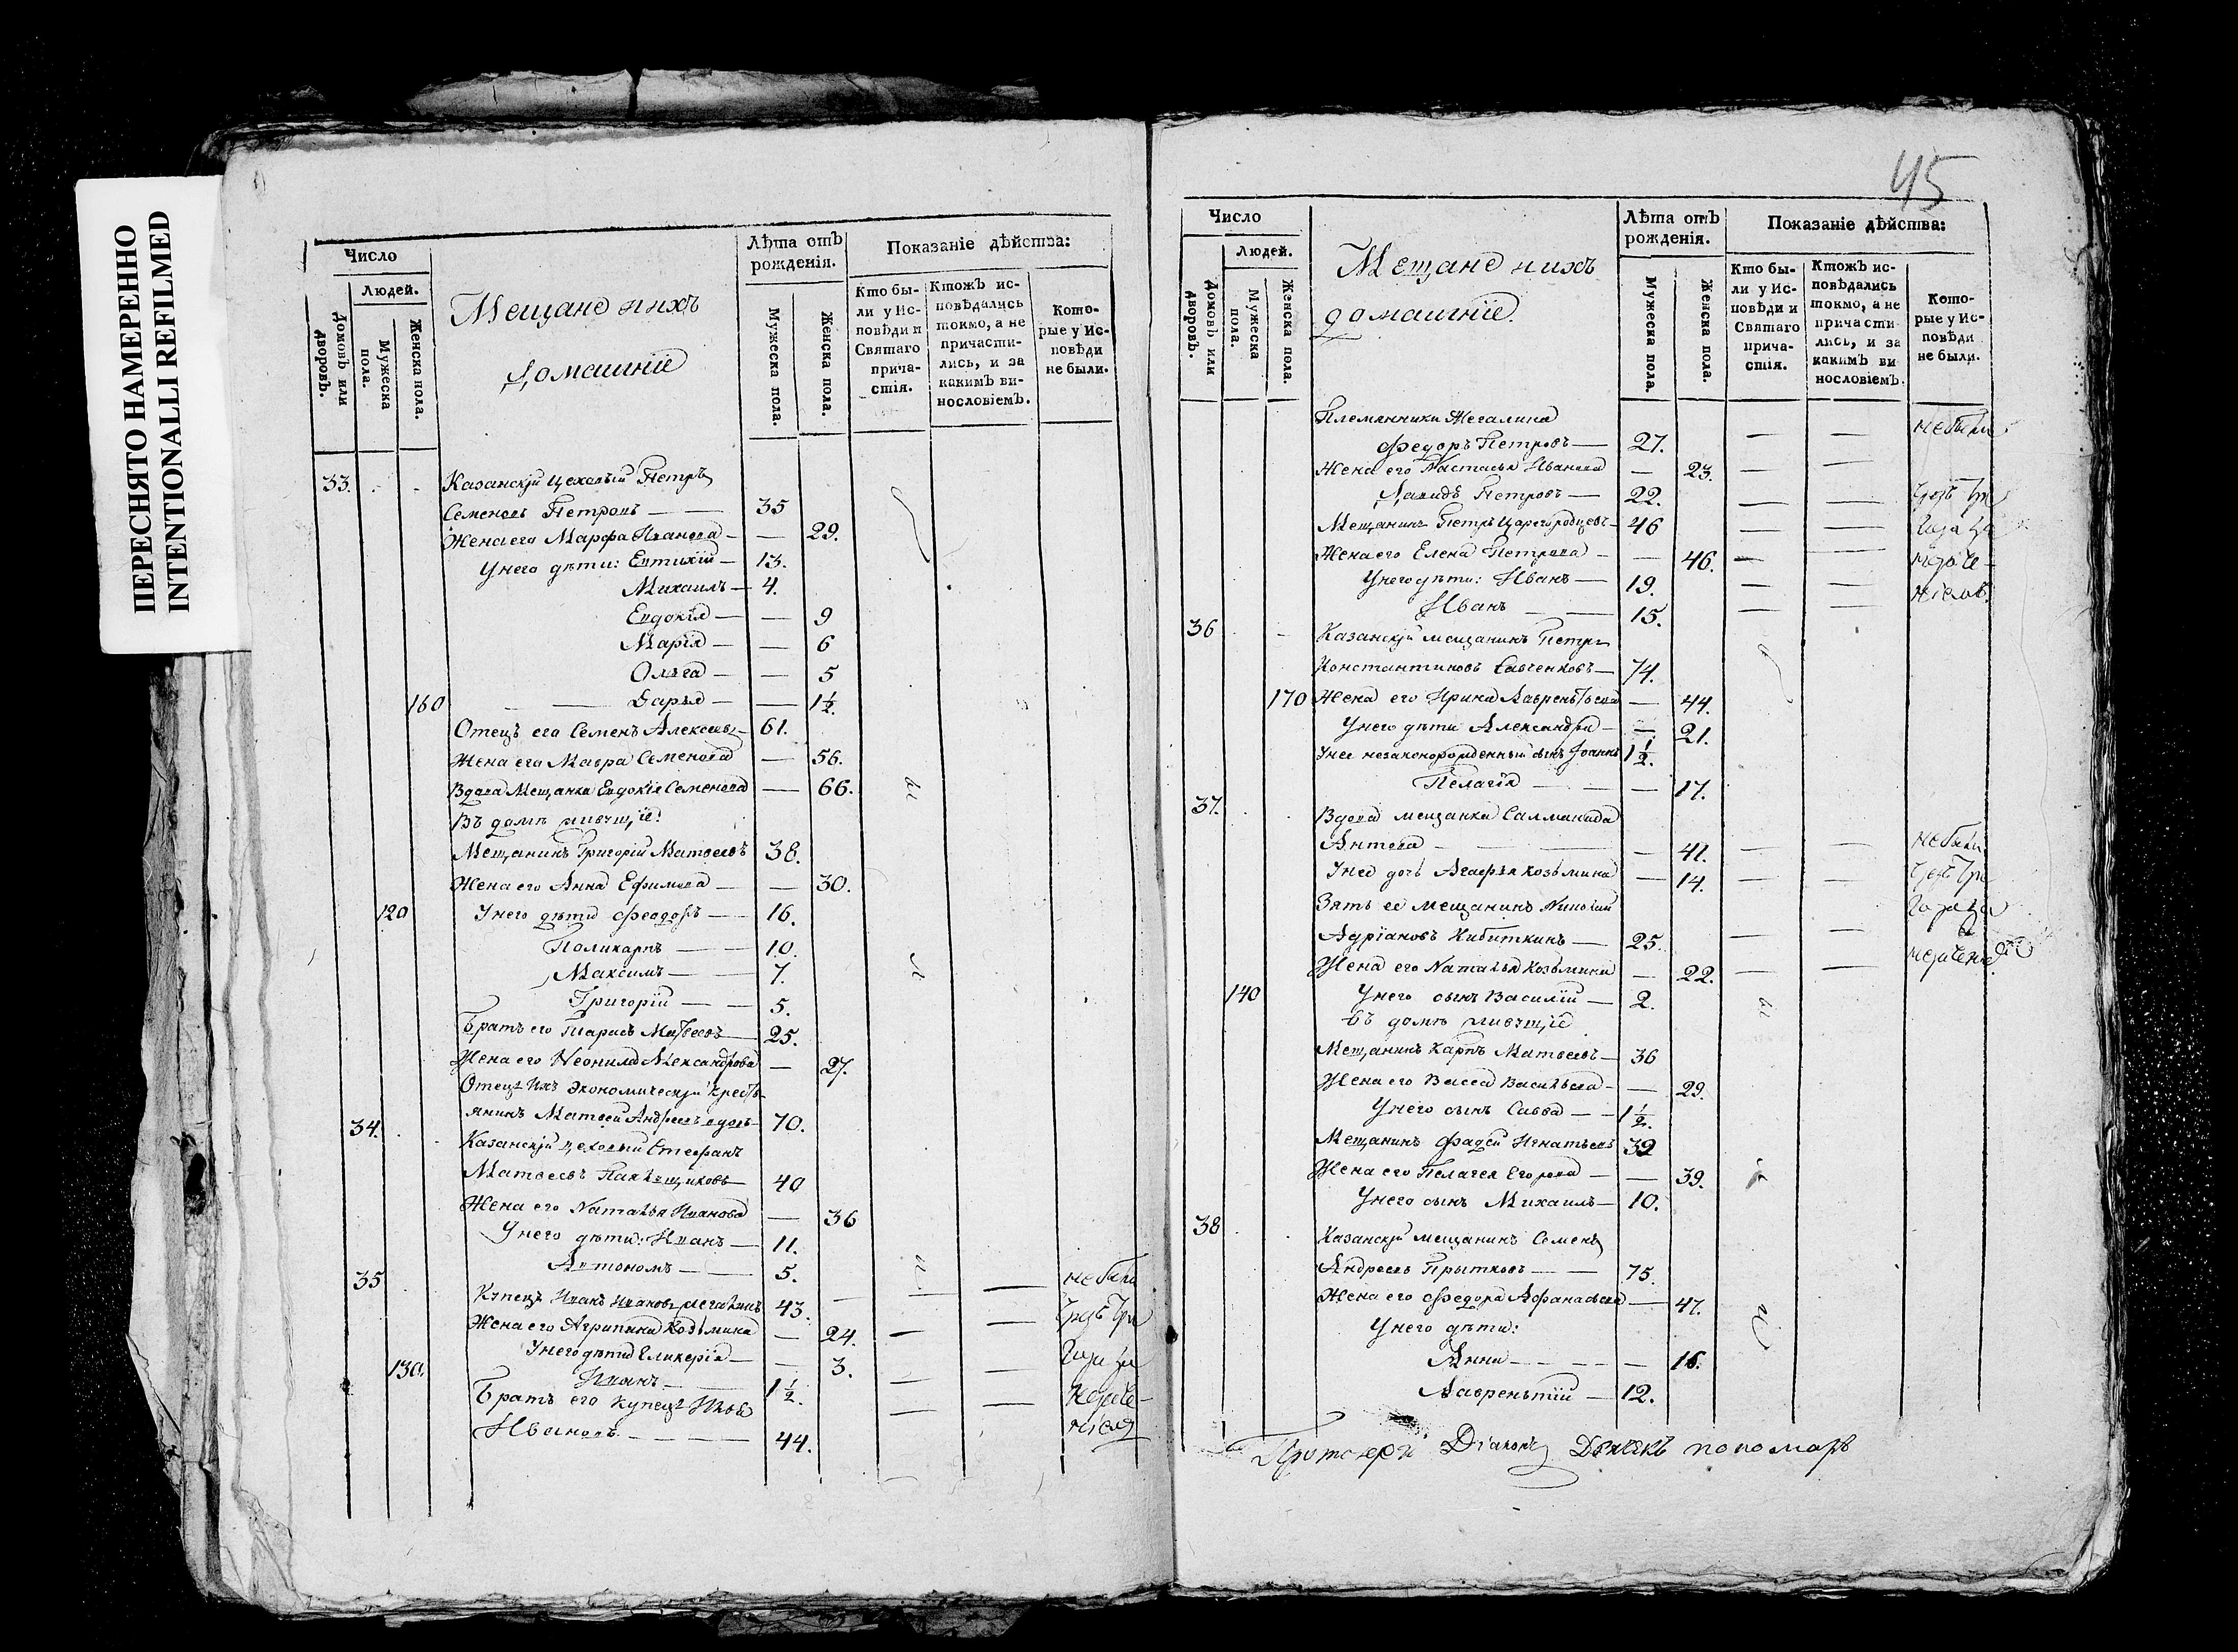 ПЕРЕСНЯТО НАМЕРЕННО
INTENTIONALLI REFILMED
Число
Людей.
Домовъ или дворовъ.
Мужеска пола.
Женска пола.
Мещане и ихъ
домашніе
Лѣта отъ рожденія.
Мужеска пола.
Женска пола.
Показаніе дѣйства:
Кто были у Исповѣди и Святаго причастія.
Ктожъ исповѣдались токмо, а не причастились, и за какимъ винословіемъ.
Которые у Исповѣди не были.
33. Казанскій цеховый Петръ
Семеновъ Петровъ 35
Жена его Марфа Иванова 29.
У него дѣти: Евтихій 13.
Михаилъ 4.
Евдокія 9
Марія 6
Ольга 5
160 Дарья 1½.
Отецъ его Семенъ Алексеевъ 61.
Жена его Мавра Семенова 56.
Вдова Мещанка Евдокія Семенова 66.
Въ домѣ живущіе:
Мещанинъ Григорій Матвеевъ 38.
Жена его Анна Ефимова 30.
120 У него дѣти Феодоръ 16.
Поликарпъ 10.
Максимъ 7.
Григорій 5.
Братъ его Тарасъ Матвеевъ 25.
Жена его Неонила Александрова 27.
Отецъ ихъ экономическій кресть-
янинъ Матвей Андреевъ вдовъ 70.
34. Казанскій цеховый Стефанъ
Матвеевъ 40
Жена его Наталья Иванова 36
У него дѣти: Иванъ 11.
Автономъ 5.
35 не были
Купецъ Иванъ Ивановъ Жегалинъ 43.
Жена его Агрипина Козьмина 24.
У него дѣти Гликерія 3.
130. Иванъ 1½.
Братъ его купецъ Яковъ
Ивановъ 44.
45
Число
Людей.
Домовъ или дворовъ.
Мужеска пола.
Женска пола.
Мещане и ихъ
домашніе.
Лѣта отъ рожденія.
Мужеска пола.
Женска пола.
Показаніе дѣйства:
Кто были у Исповѣди и Святаго причастія.
Ктожъ исповѣдались токмо, а не причастились, и за какимъ винословіемъ.
Которые у Исповѣди не были.
Племянники Жегалина не были
Федоръ Петровъ 27.
Жена его Настасья Иванова 23.
Давидъ Петровъ 22.
Мещанинъ Петръ Царегородцевъ 46
Жена его Елена Петрова 46.
У него дѣти: Иванъ 19.
Иванъ 15.
36 Казанскій мещанинъ Петръ
Константиновъ Савченковъ 74.
170 Жена его Ирина Лаврентьева 44.
У него дѣти Александра 21.
У нее незаконорожденный сынъ Іоаннъ 1½.
Пелагія 17.
37. Вдова мещанка Саломанида
41. не были
У нее дочь Агафья Козьмина 14.
Зять ее мещанинъ Николай
Адріановъ Кибиткинъ 25.
Жена его Наталья Козьмина 22.
140 У него сынъ Василій 2.
Въ домѣ живущіе
Мещанинъ Карпъ Матвеевъ 36
Жена его Васса Васильева 29.
У него сынъ Савва 1½.
Мещанинъ Фадей Игнатьевъ 39
Жена его Пелагея Егорова 39.
У него сынъ Михаилъ 10.
38 Казанскій мещанинъ Семенъ
Андреевъ Прытковъ 75.
Жена его Федора Афанасьева 47.
У него дѣти:
Анна 16.
Лаврентій 12.
Протоіерей Діаконъ Дьячекъ пономарь